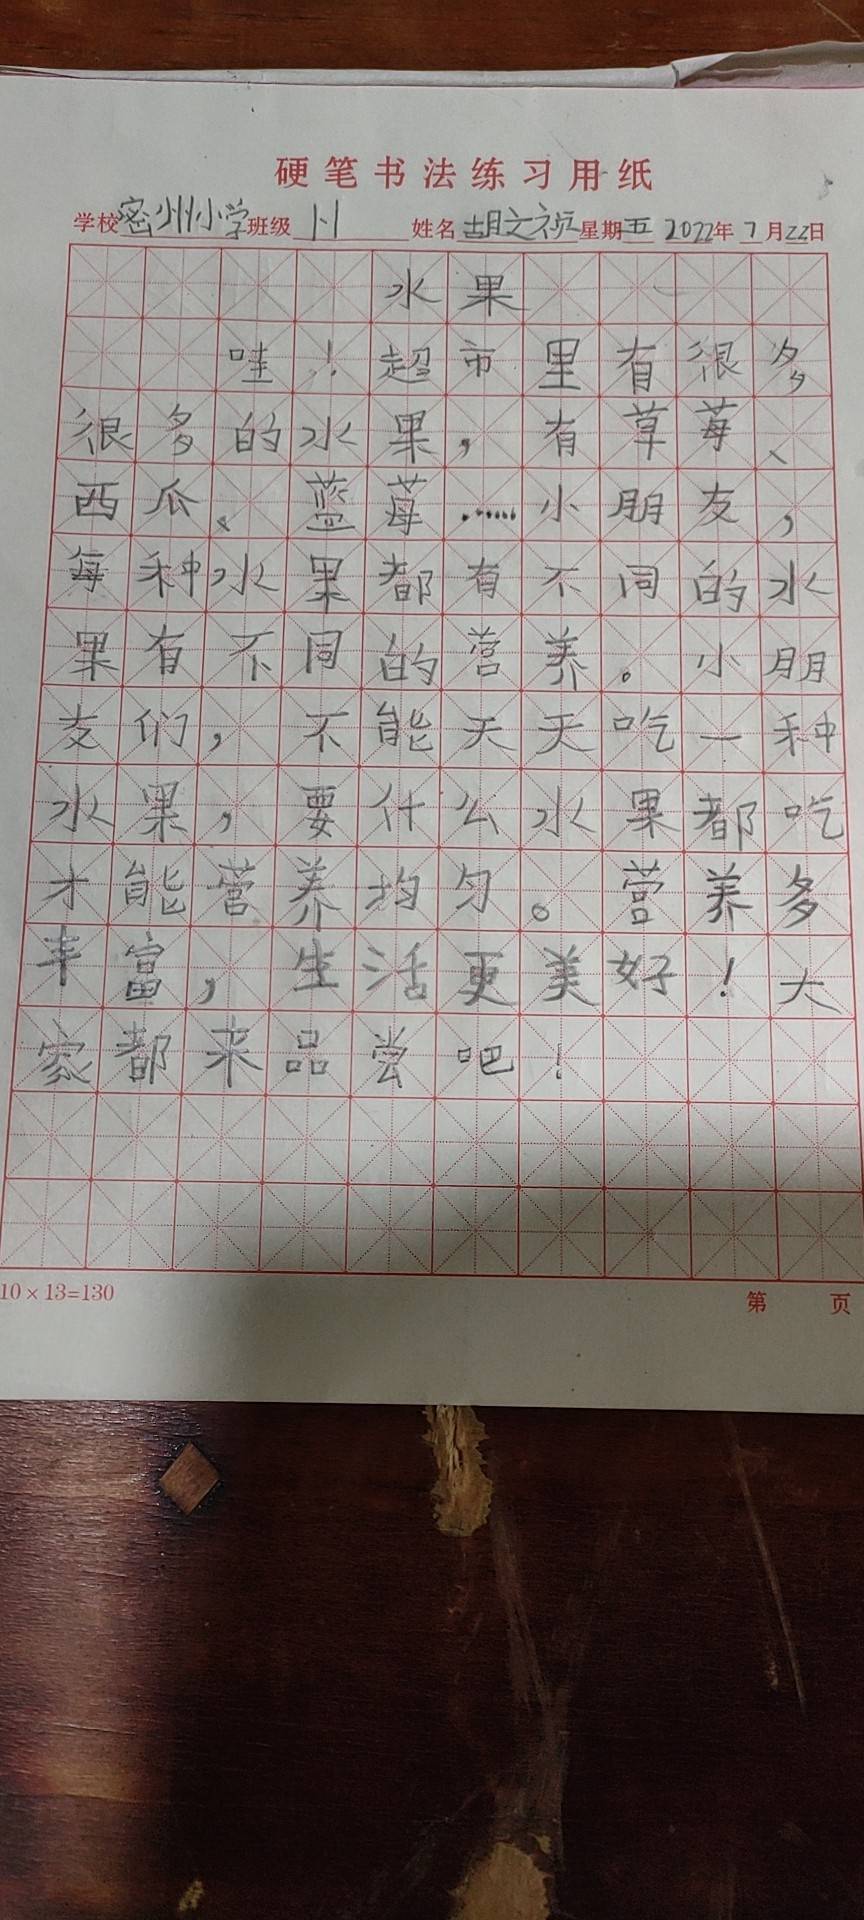 硬笔书法练习用纸
学校密州小学班级1-1 姓名胡文 星期五 2022年7月22日
水果
哇！超市里有很多
很多的水果，有草莓、
西瓜、蓝莓……小朋友，
每种水果都有不同的水
果有不同的营养。小朋
友们，不能天天吃一种
水果，要什么水果都吃
才能营养均匀。营养多
丰富，生活更美好！大
家都来品尝吧！
10×13=130
第 页